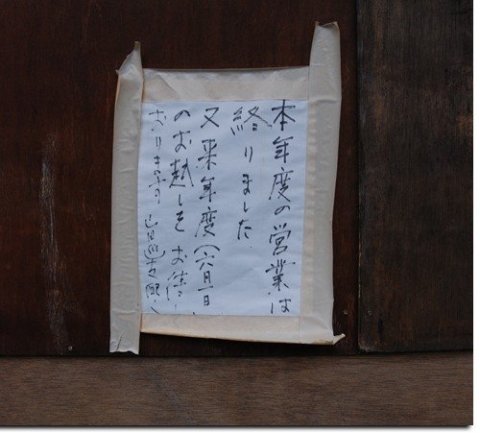 本年度の営業は
終りました
又来年度(六月一日)
のお越しをお待
おります。